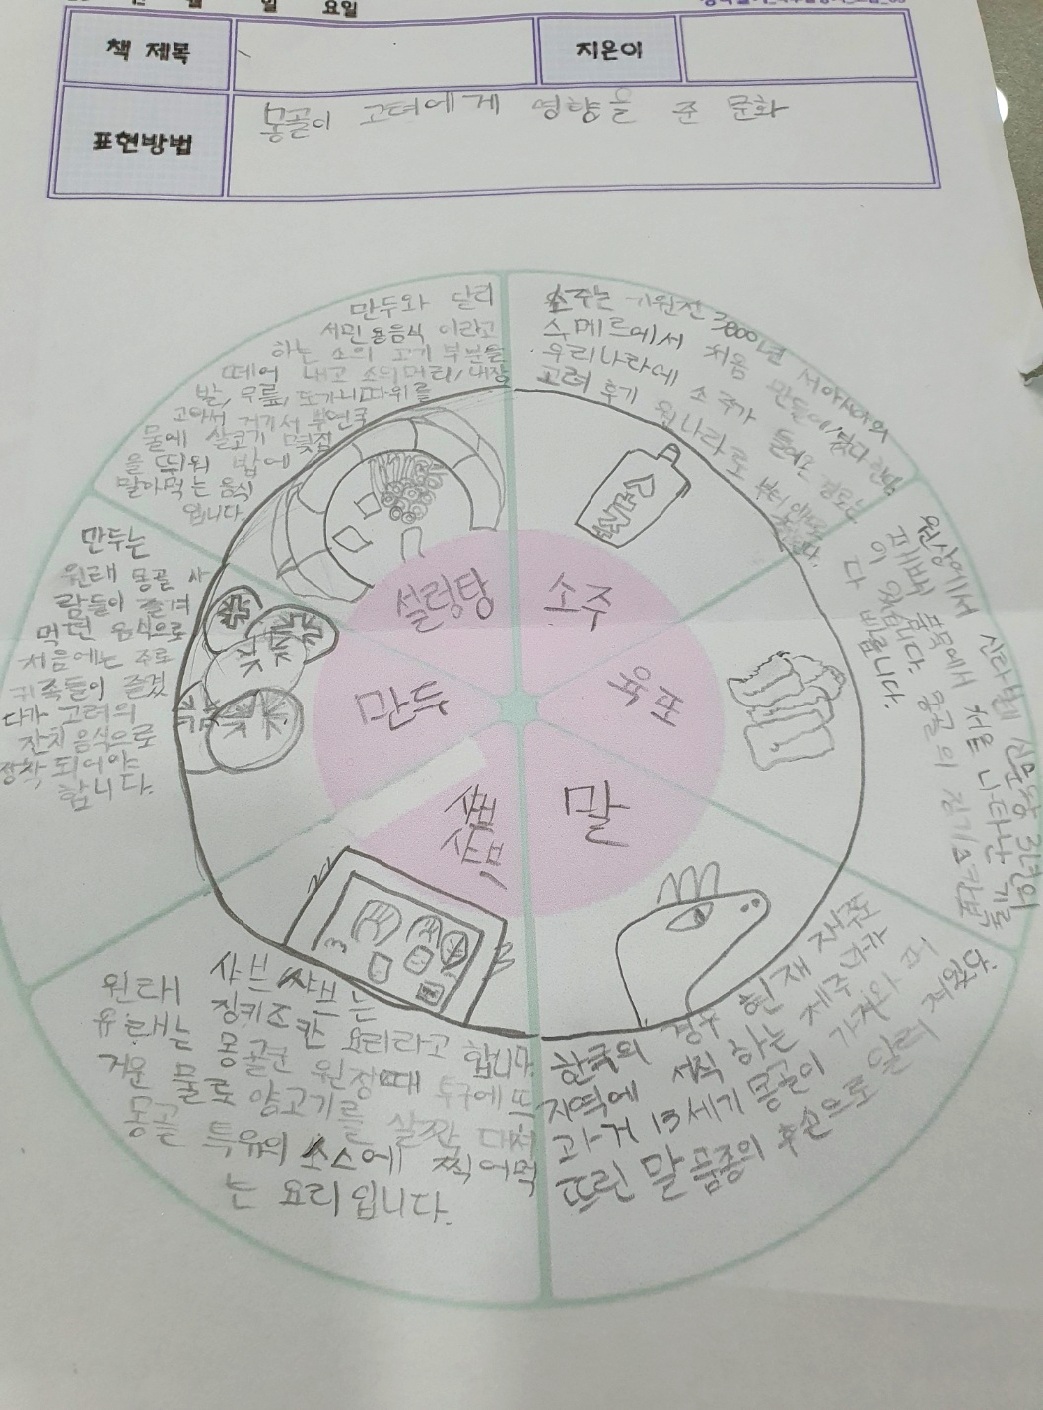 일 요일
책 제목
지은이
표현방법
몽골이 고려에게 영향을 준 문화
만두와 달리
서민용음식 이라고
하는 소의 고기 부분을
떼어 내고 소의머리/내장
발, 무릎, 도가니따위를
고아서 거기서 뿌연국
물에 살코기 몇집
을 띄워 밥에
말아먹는 음식
입니다
소주는 기원전 3800년 서아시아의
수메르에서 처음 만들어
우리나라에 소주가 들어온 경로는
고려 후기 원나라로 부터
소주
설렁탕
소주
만두
육포
샤브
샤브
말
만두는
원래 몽골 사
람들이 즐겨
먹던 음식으로
처음에는 주로
귀족들이 즐겼
다가 고려의
잔치음식으로
정착 되어야
합니다.
신문왕 3년의
폐백 품목에서 처음 나타난 기록
이 있습니다. 몽골의
다 바릅니다.
샤브샤브는
원래 징키즈 칸 요리라고 합니다.
유래는 몽골군 원정때 투구에 뜨
거운 물로 양고기를 살짝 데쳐
몽골 특유의 소스에 찍어먹
는 요리 입니다.
한국의 경우 현재 제주
지역에 서식 하는 제주마가
과거 13세기 몽골이 가져와 퍼
뜨린 말 품종의 후손으로 알려 져있